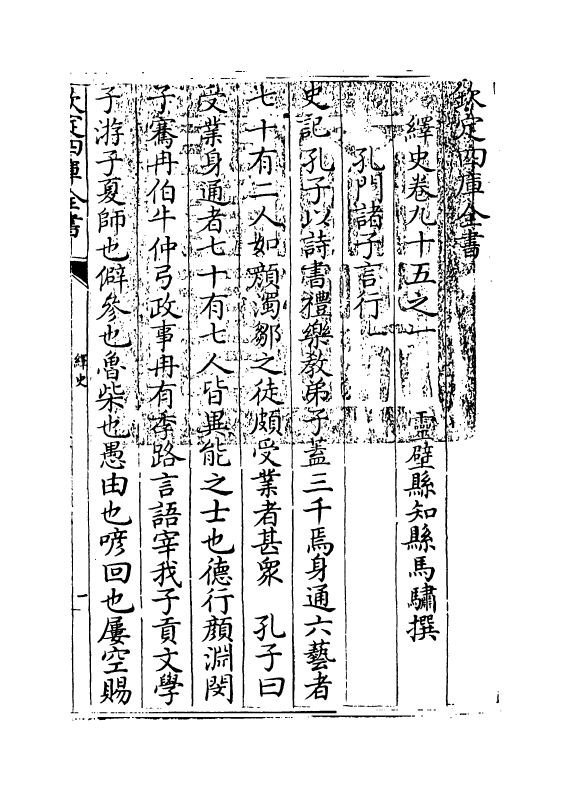 欽定四庫全書
繹史卷九十五之一
靈壁縣知縣馬驌撰
孔門諸子言行一
史記孔子以詩書禮樂教弟子蓋三千焉身通六藝者
七十有二人如顔濁鄒之徒頗受業者甚衆　孔子曰
受業身通者七十有七人皆異能之士也德行顔淵閔
子騫冉伯牛仲弓政事冉有季路言語宰我子貢文學
子游子夏師也僻參也魯柴也愚由也喭回也屢空賜
欽定四庫全書
繹史
一